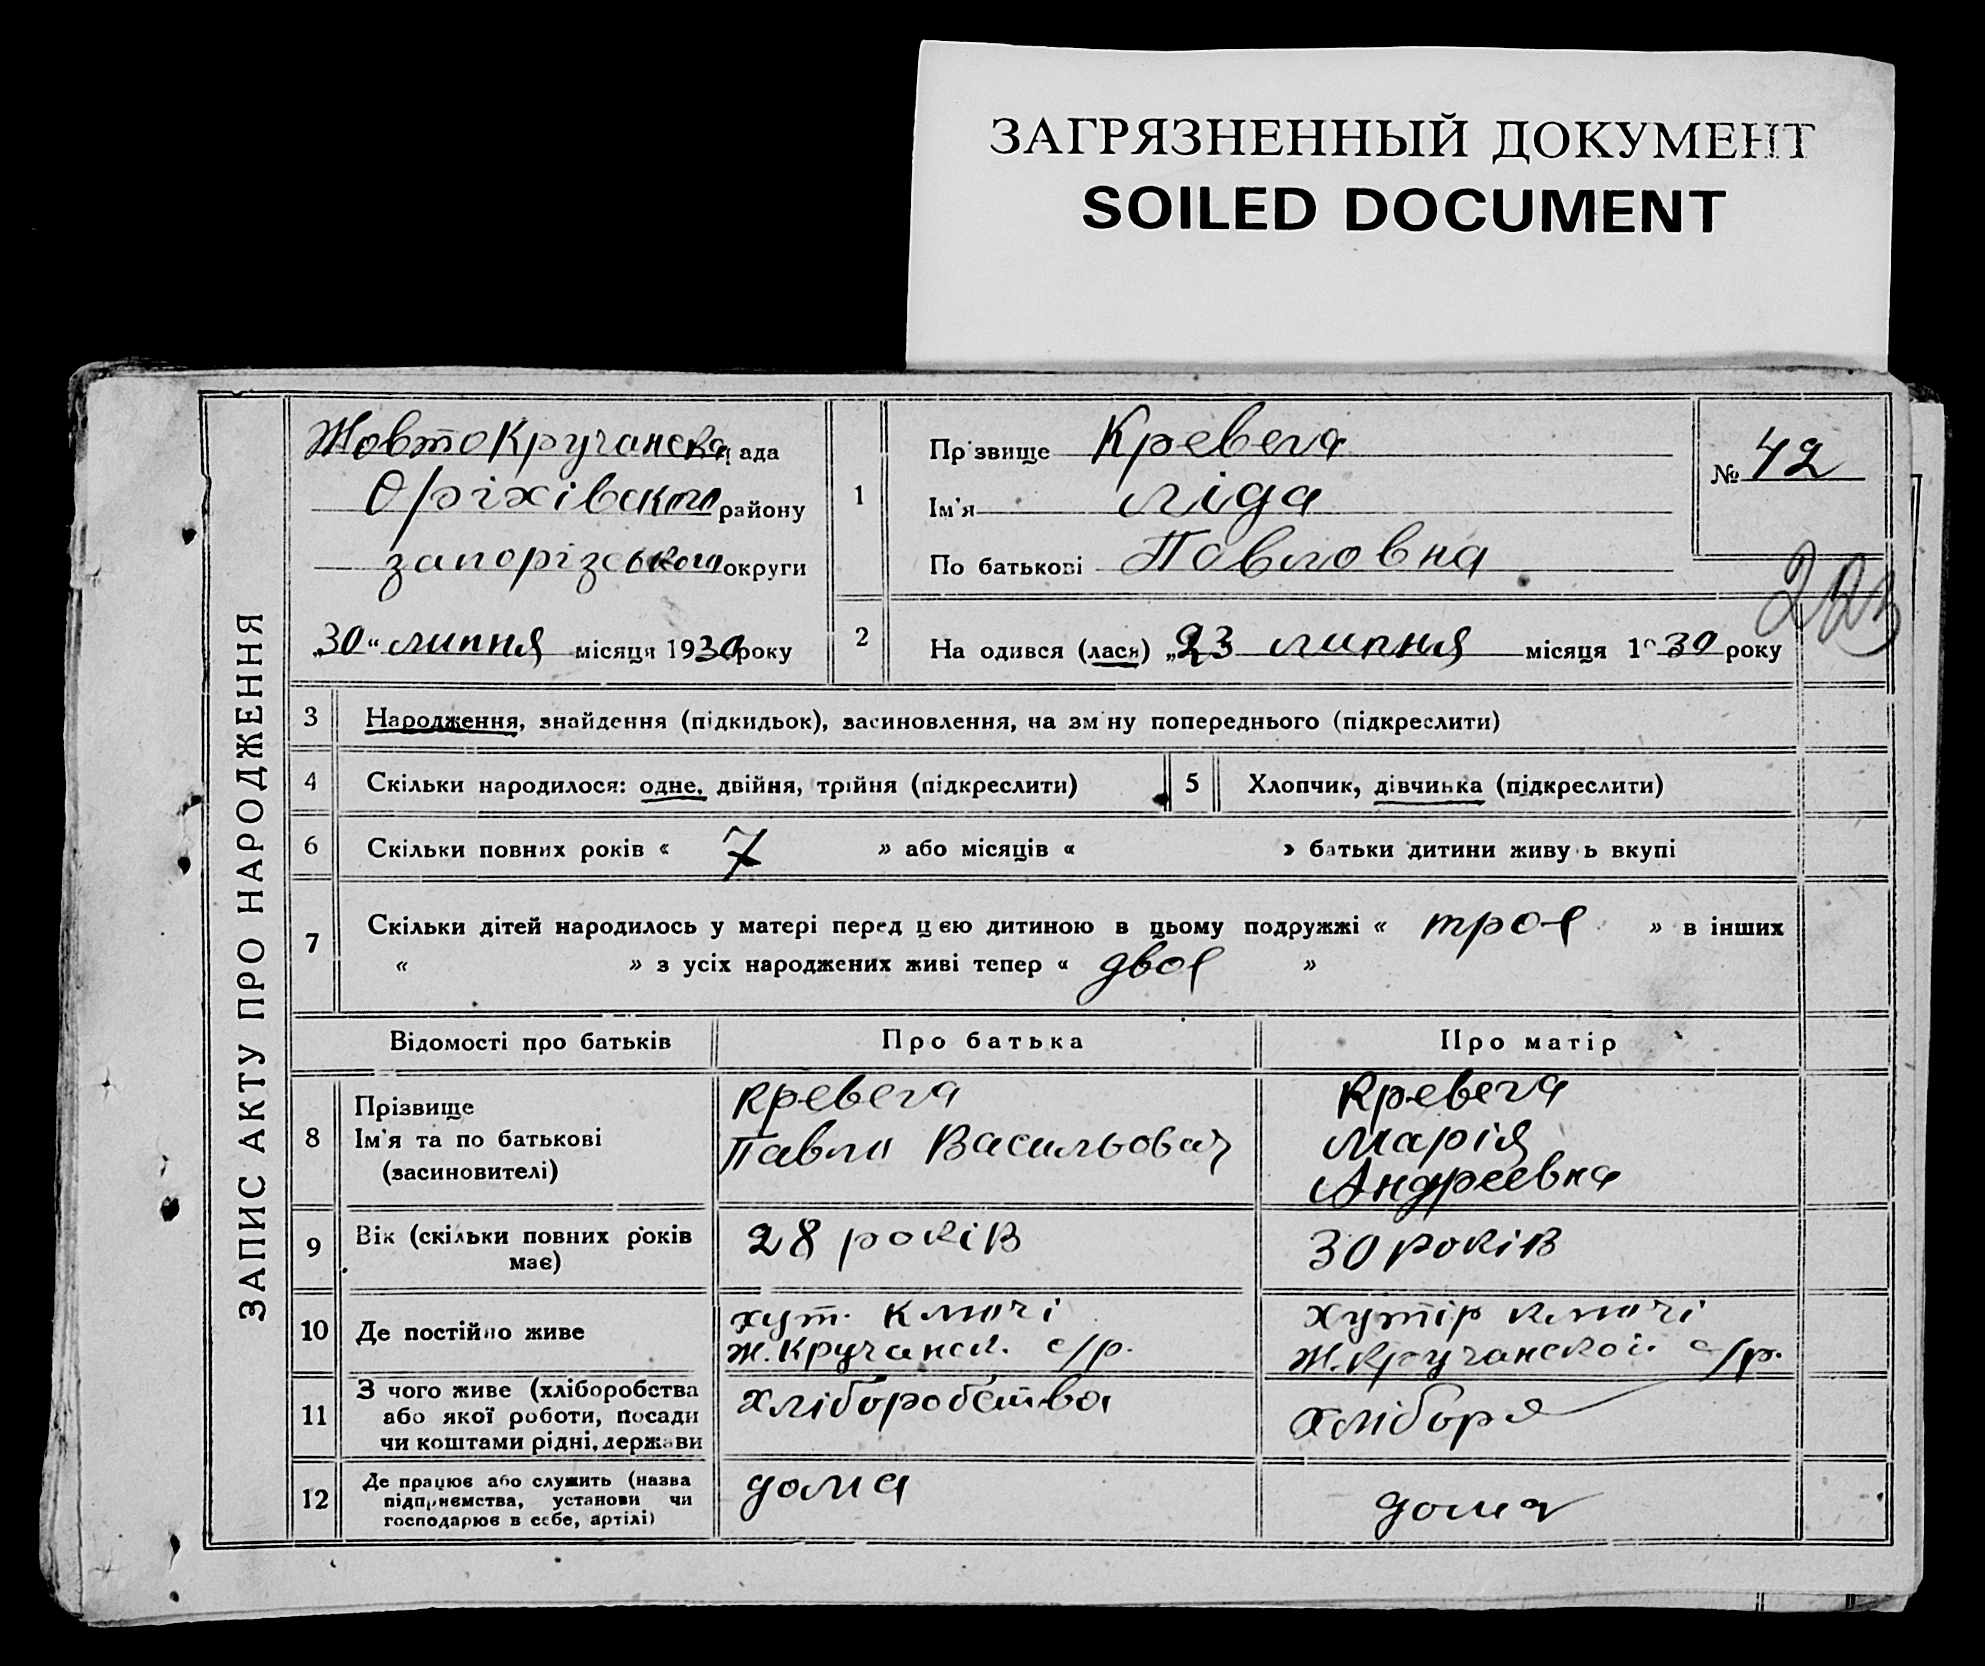 ЗАГРЯЗНЕННЫЙ ДОКУМЕНТ
SOILED DOCUMENT
ЗАПИС АКТУ ПРО НАРОДЖЕННЯ
Жовтокручанска рада
Оріхівского району
запорізського округи
„30“ липня місяця 1930 року
1
Прізвище Кревега
Ім'я Ліда
По батькові Павловна
№ 42
203
2
На одився (лася) „23 липня місяця 19 30 року
3 Народження, знайдення (підкидьок), засиновлення, на зміну попереднього (підкреслити)
4 Скільки народилося: одне, двійня, трійня (підкреслити)
5 Хлопчик, дівчинка (підкреслити)
6 Скільки повних років « 7 » або місяців « » батьки дитини живуть вкупі
7 Скільки дітей народилось у матері перед цією дитиною в цьому подружжі « троє » в інших
« » з усіх народжених живі тепер « двоє »
Відомості про батьків Про батька Про матір
8 Прізвище
Ім'я та по батькові
(засиновителі)
Кревега
Павло Васильович
Кревега
Марія
Андреевна
9 Вік (скільки повних років
має)
28 років
30 років
10 Де постійно живе
хут. Ключі
Ж.Кручанск. с/р.
Хутір Ключі
Ж.Кручанской с/р.
11 З чого живе (хліборобства
або якої роботи, посади
чи коштами рідні, держави
хліборобства
хлібороб
12 Де працює або служить (назва
підприємства, установи чи
господарює в себе, артілі)
дома
дома